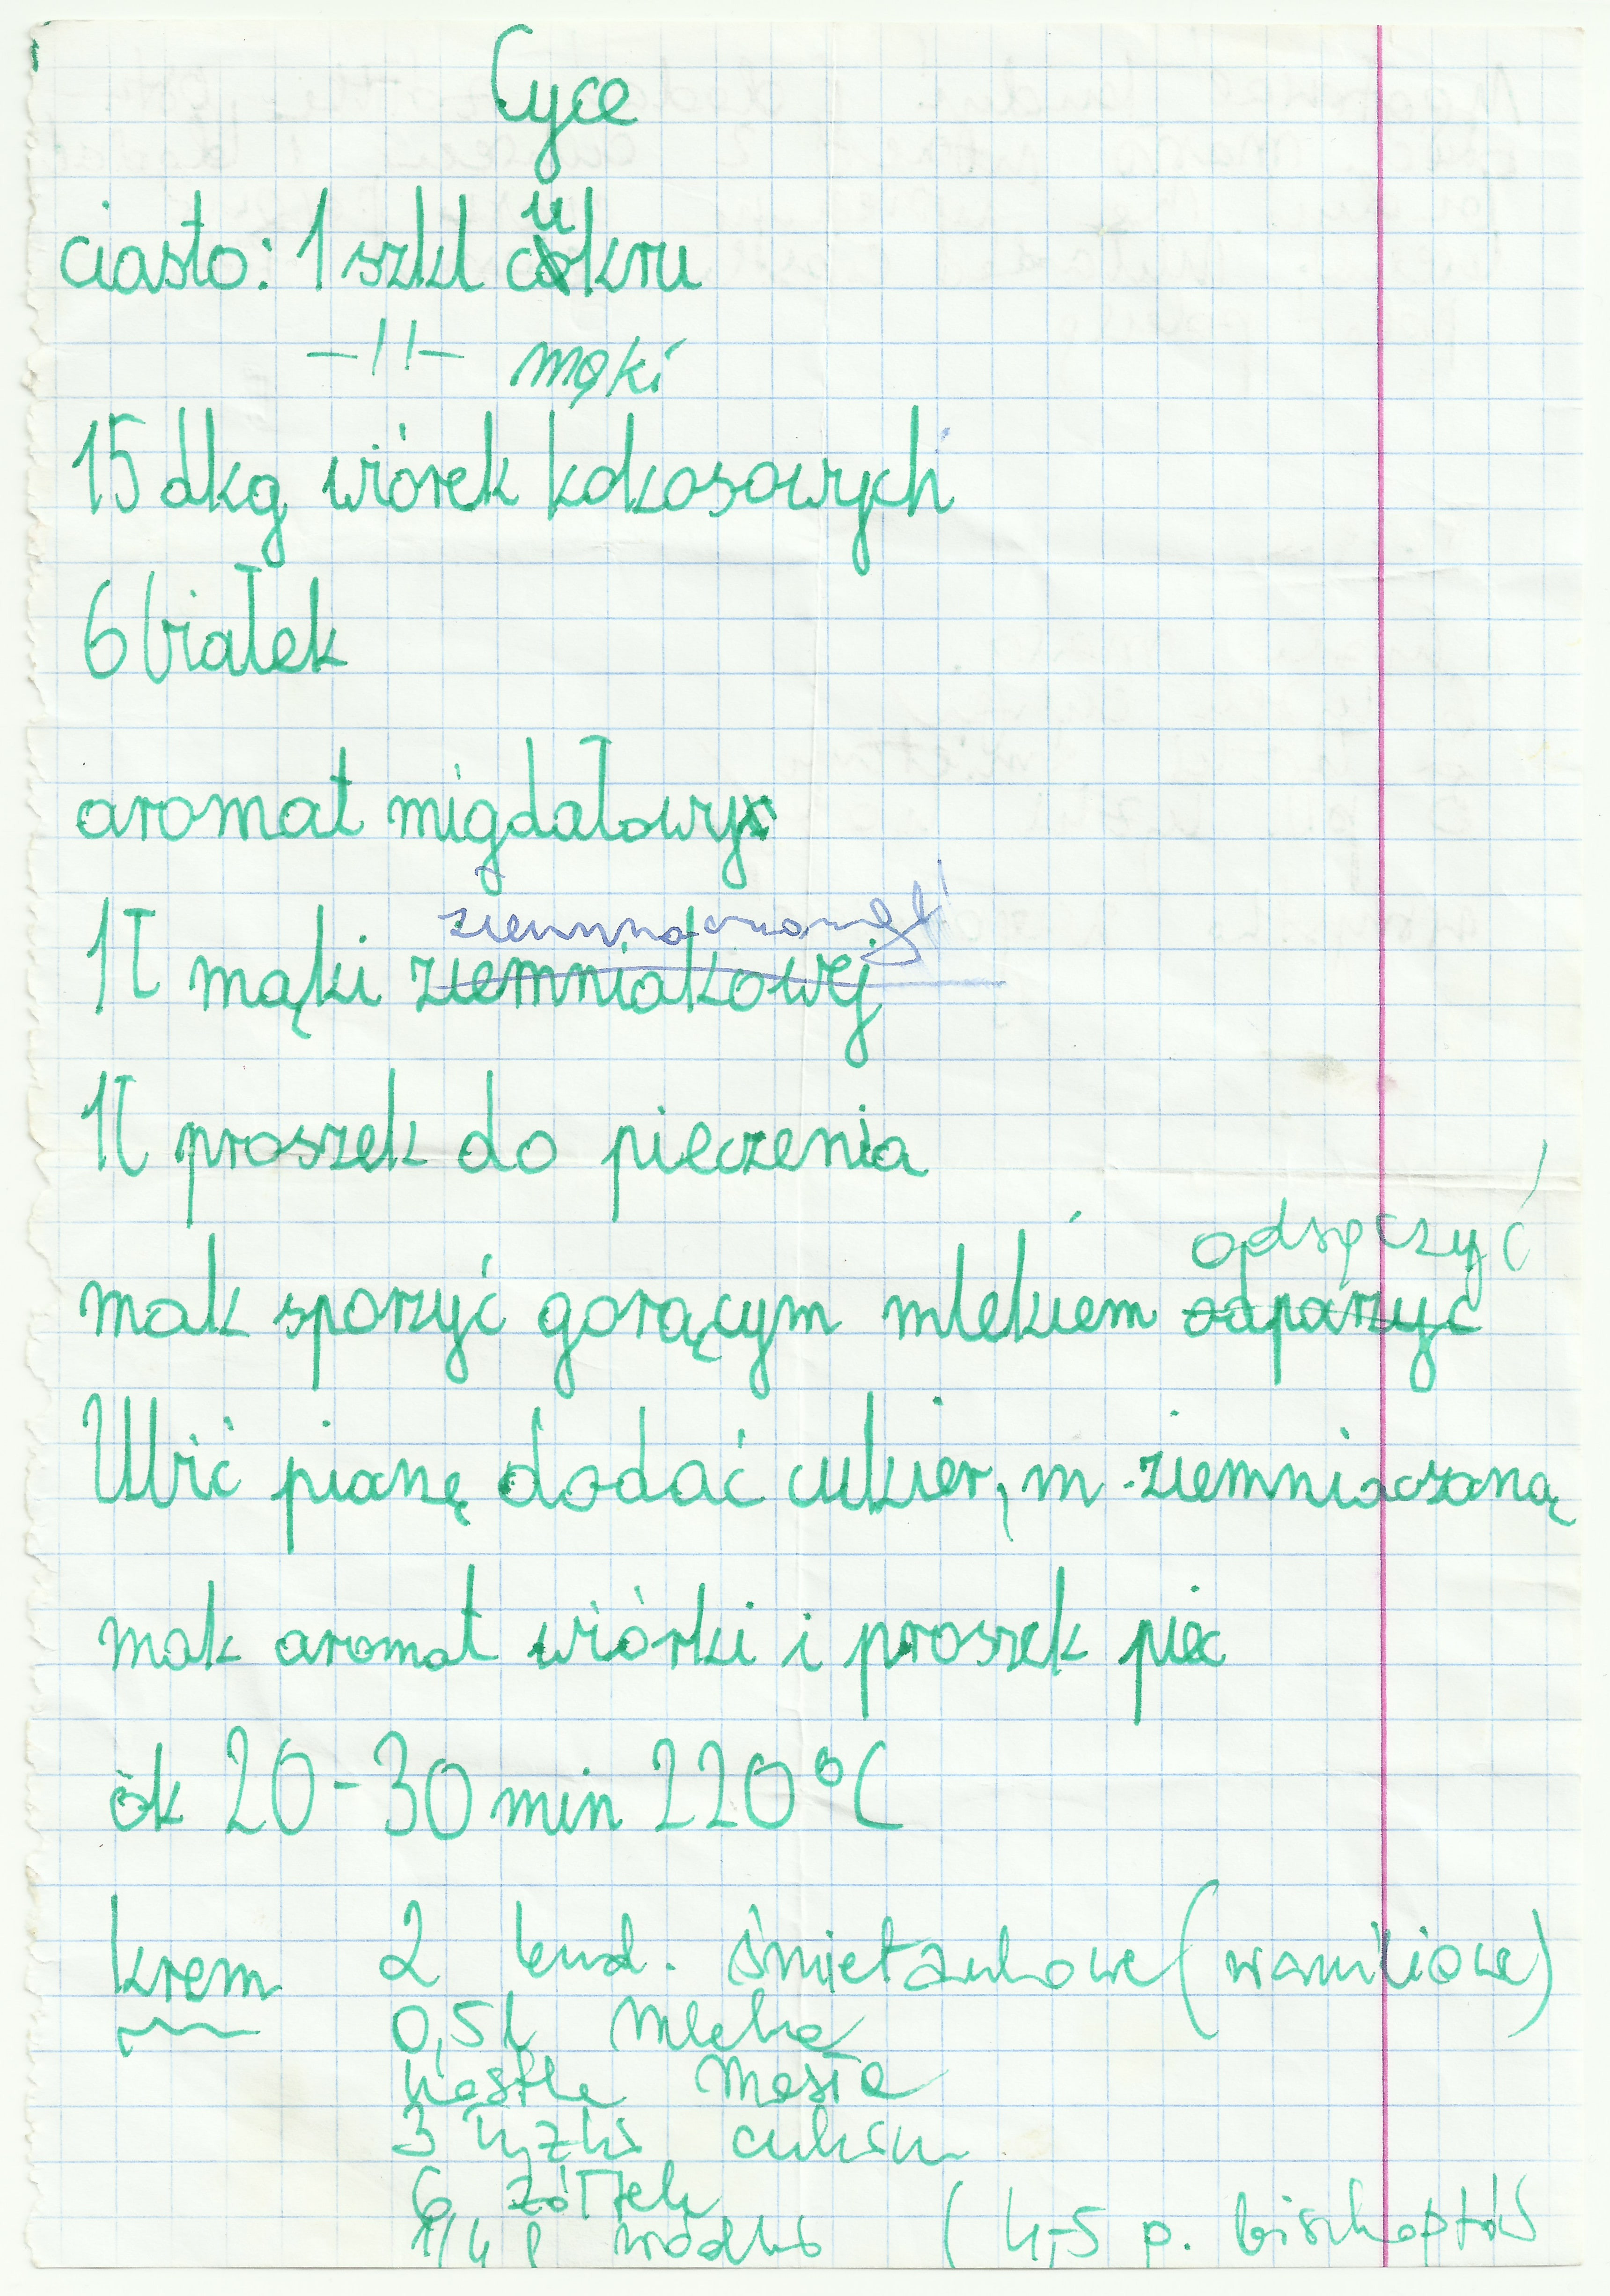 Cyce
ciasto: 1 szkl cukru
-!!- mąki
15 dkg wiórek kokosowych
6 białek
aromat migdałowy
ziemniaczanej
1ł mąki ziemniakowej
1ł proszek do pieczenia
odsączyć
mak sporzyć gorącym mlekiem odparzyć
Ubić pianę dodać cukier, m. ziemniaczaną
mak aromat wiórki i proszek piec
ok 20-30 min 220°C
krem 2 bud. śmietankowe (waniliowe)
0,5 l mleka
kostka masła
3 łyżki cukru
6 żółtek
1/4 l wódki (4,5 p. biszkoptów